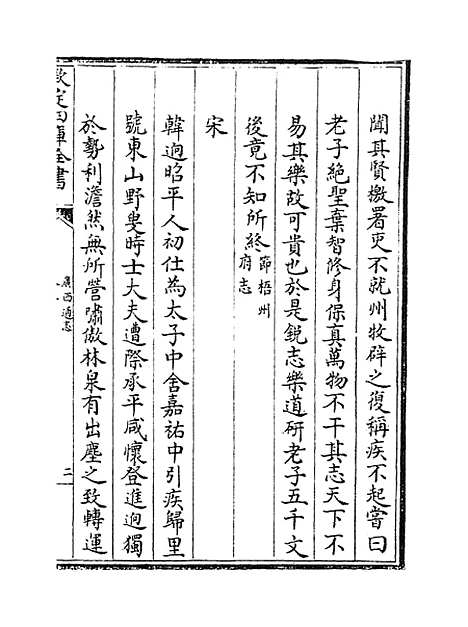 聞其賢檄署吏不就州牧辟之復稱疾不起嘗曰
老子絶聖棄智修身保真萬物不干其志天下不
易其樂故可貴也於是銳志樂道研老子五千文
後竟不知所終節梧州府志
宋
韓逈昭平人初仕為太子中舍嘉祐中引疾歸里
號東山野叟時士大夫遭際承平咸懷登進逈獨
於勢利澹然無所營嘯傲林泉有出塵之致轉運
欽定四庫全書
廣西通志
二